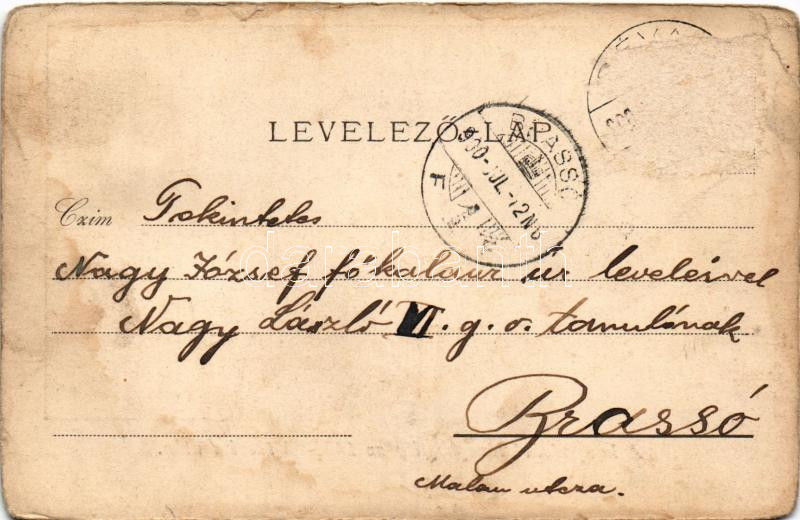 LEVELEZŐ-LAP
BRASSÓ
900 JUL. 12 N6
Czim Tekintetes
Nagy József főkalauz úr leveleivel
Nagy László VI. g. o. tanulónak
Brassó
Malom utcza.
darabanth